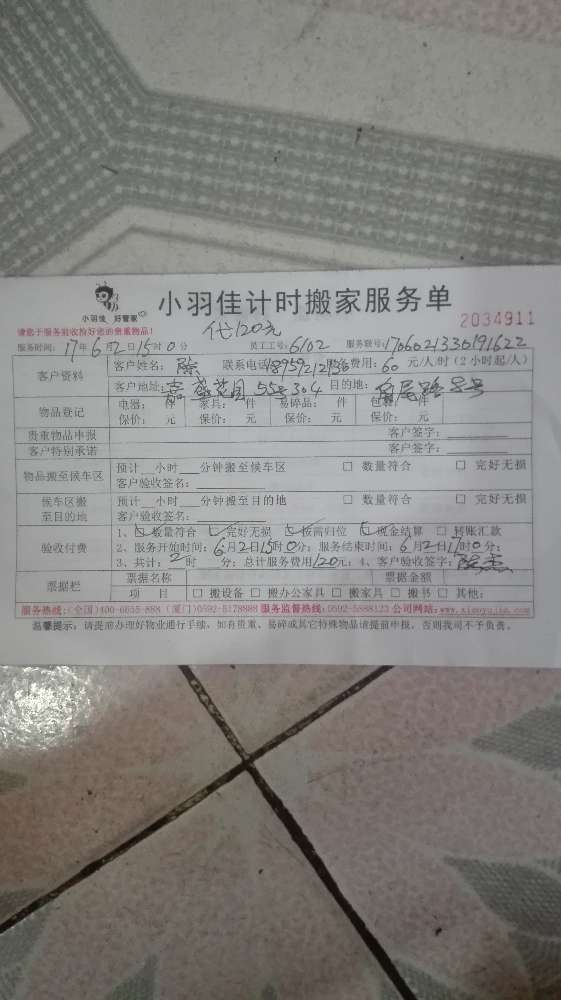 小羽佳 好管家
小羽佳计时搬家服务单
请您于服务前收拾好您的贵重物品!
代120元
2034911
服务时间: 17年6月2日15时0分 员工工号: 6102 服务联号: 1706021330191622
客户资料
客户姓名: 陈 联系电话 18959212736 服务费用: 60 元/人/时(2小时起/人)
客户地址: 嘉盛花园55号304 目的地: 路8号
物品登记
电器: 件 家具: 件 易碎品: 件 包裹: 件
保价: 元 保价: 元 保价: 元 保价: 元
贵重物品申报 客户签字:
客户特别承诺 客户签字:
物品搬至候车区
预计 小时 分钟搬至候车区 □ 数量符合 □ 完好无损
客户验收签名:
候车区搬至目的地
预计 小时 分钟搬至目的地 □ 数量符合 □ 完好无损
客户验收签名:
验收付费
1、☑数量符合 ☑完好无损 ☑按需归位 ☑现金结算 □ 转账汇款
2、服务开始时间: 6月2日15时0分; 服务结束时间: 6月2日17时0分;
3、共计: 2时 分; 总计服务费用120元; 4、客户验收签字: 陈杰
票据栏
票据名称 票据金额
项 目 □ 搬设备 □ 搬办公家具 □ 搬家具 □ 搬书 □ 其他:
服务热线:(全国)400-6655-888 (厦门)0592-5178888 服务监督热线:0592-5888123 公司网站:www.xiaoyujia.com
温馨提示: 请提前办理好物业进行手续, 如有贵重、易碎或其它特殊物品请提前申报, 否则我司不予负责。